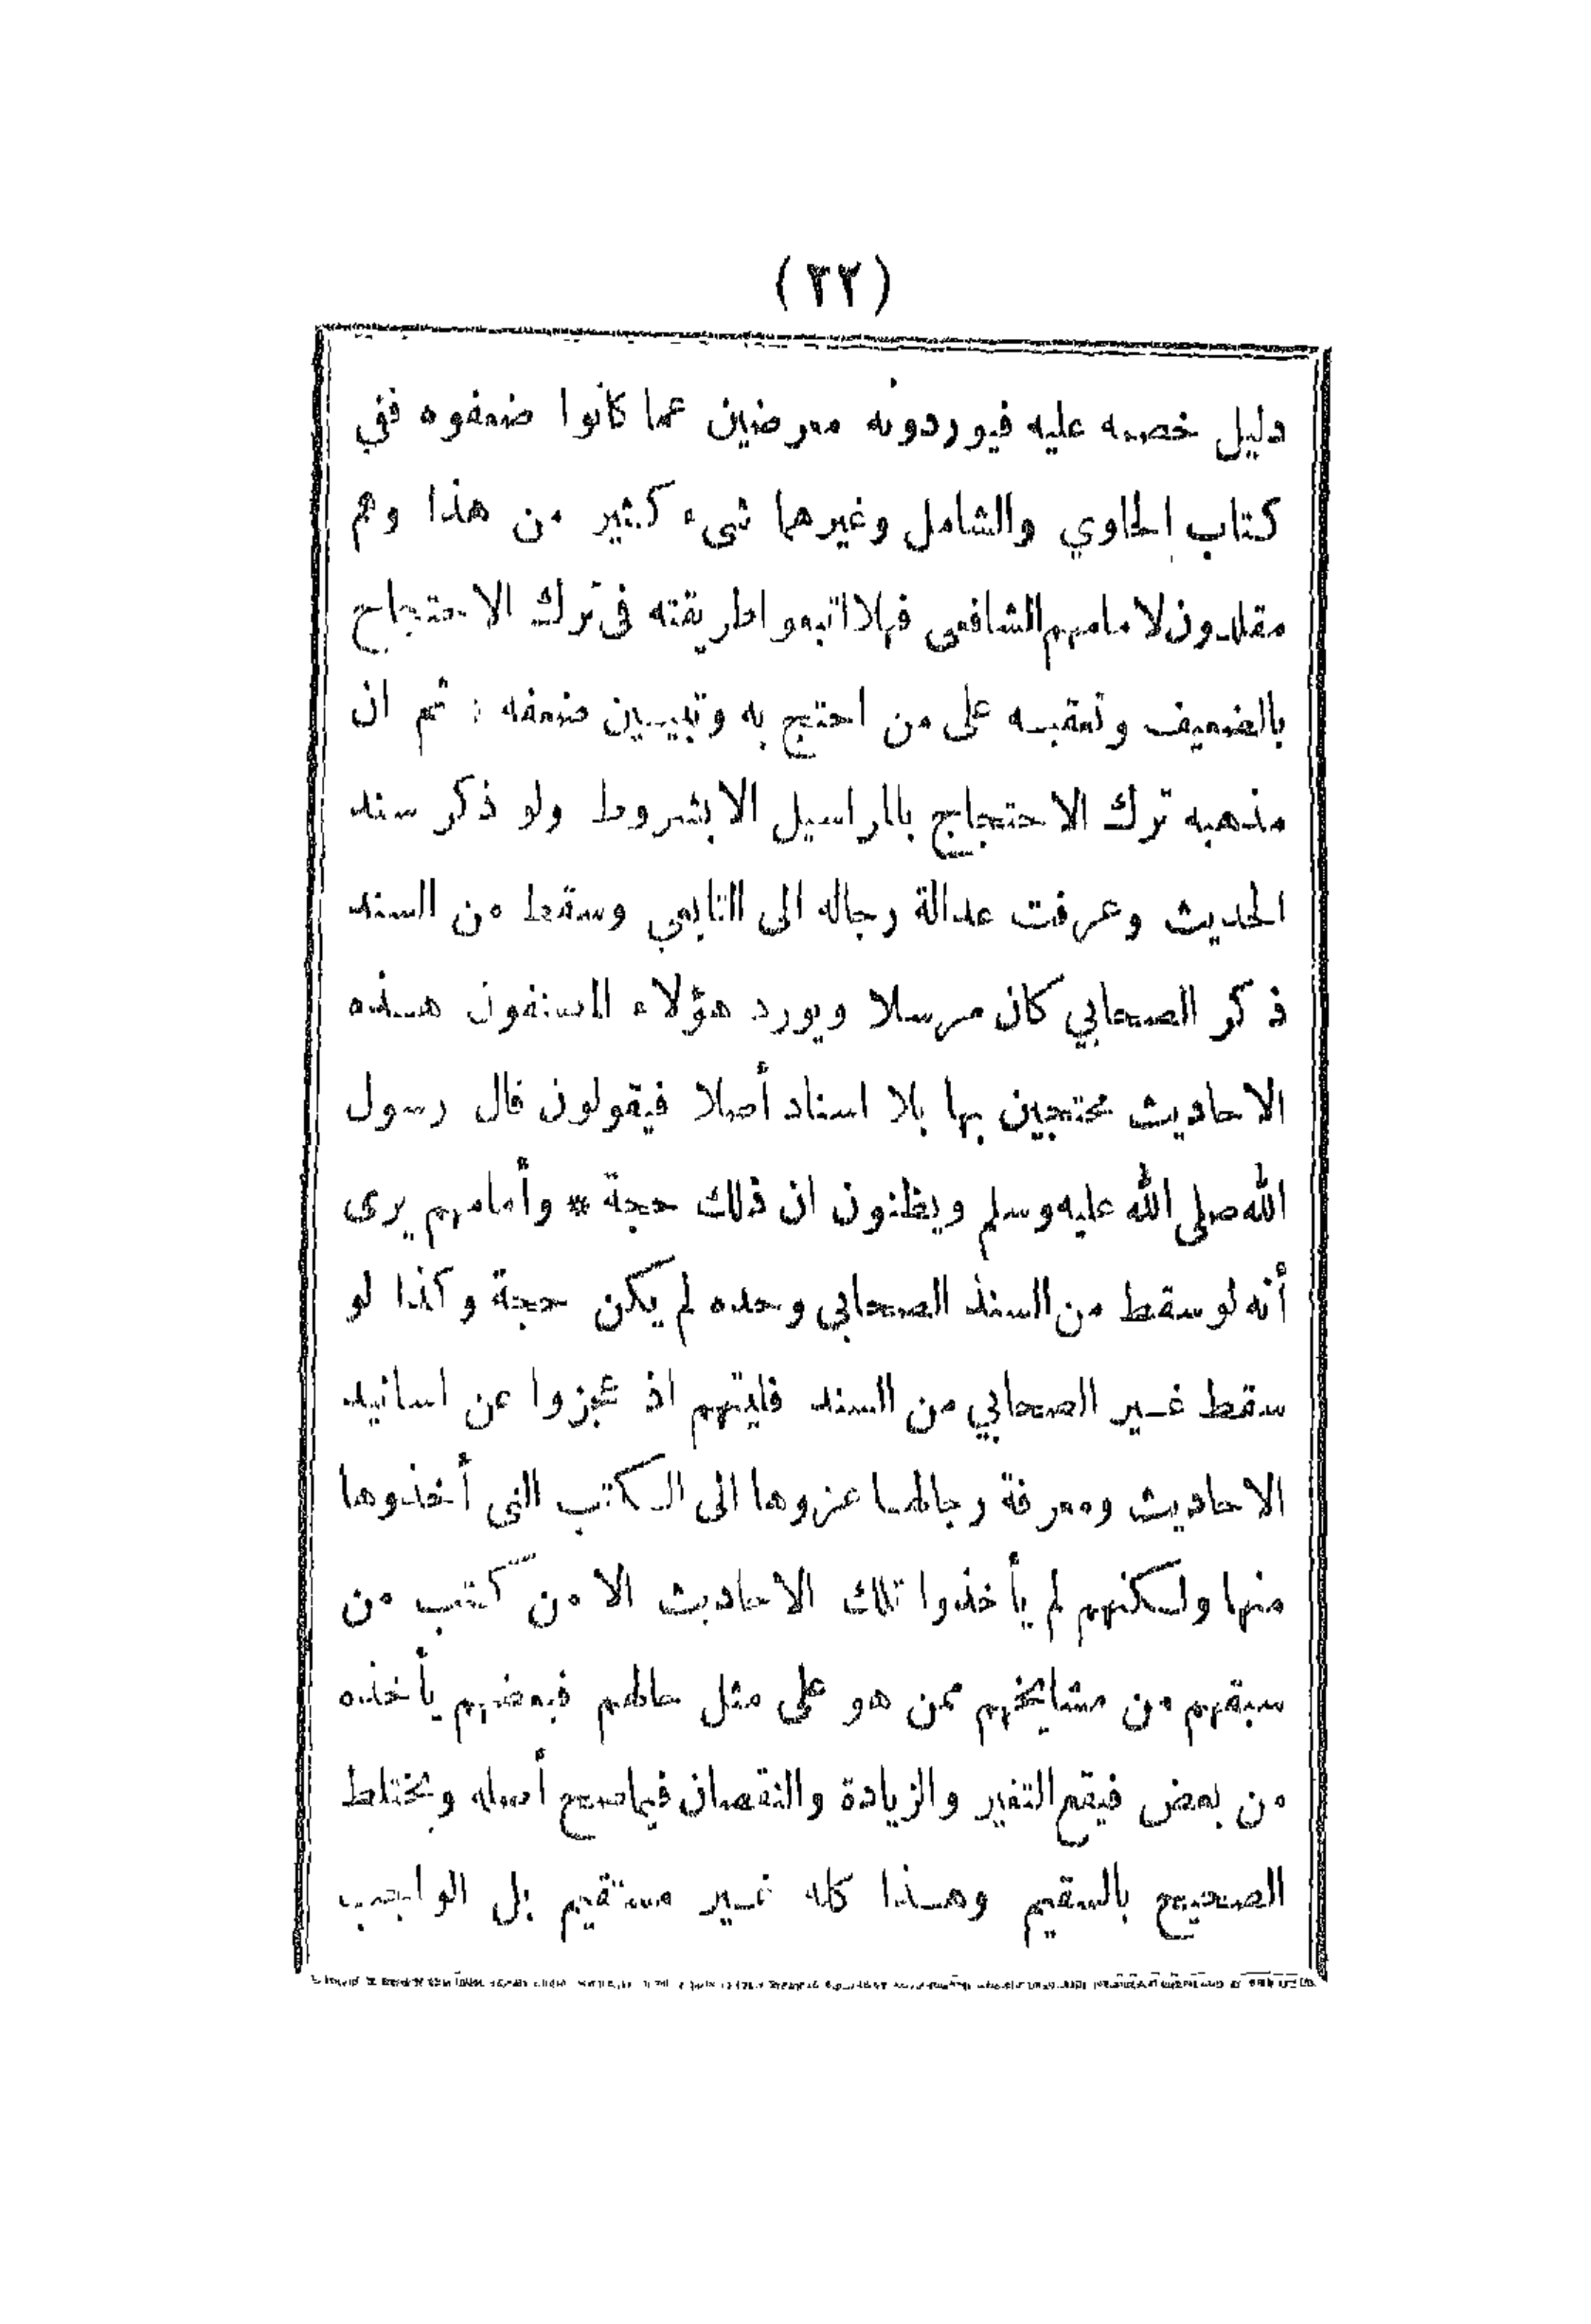 (٢٢)
دليل خصمه عليه فيوردونه معرضين عما كانوا ضعفوه ففي
كتاب الحاوي والشامل وغيرهما شىء كثير من هذا وهم
مقلدون لامامهم الشافعى فهلا اتبعوا طريقته فى ترك الاحتجاج
بالضعيف وتعقبه على من احتج به وتبيين ضعفه : ثم ان
مذهبه ترك الاحتجاج بالمراسيل الا بشروط ولو ذكر سند
الحديث وعرفت عدالة رجاله الى التابعي وسقط من السند
ذكر الصحابي كان مرسلا ويورد هؤلاء المصنفون هذه
الاحاديث محتجين بها بلا اسناد أصلا فيقولون قال رسول
الله صلى الله عليه وسلم ويظنون ان ذلك حجة * وأمامهم يرى
أنه لو سقط من السند الصحابي وحده لم يكن حجة وكذا لو
سقط غير الصحابي من السند فليتهم اذ عجزوا عن اسانيد
الاحاديث ومعرفة رجالها عزوها الى الكتب التى أخذوها
منها ولكنهم لم يأخذوا تلك الاحاديث الا من كتب من
سبقهم من مشايخهم ممن هو على مثل حالهم فبعضهم يأخذه
من بعض فيقع التغير والزيادة والنقصان فيما صح أصله ويختلط
الصحيح بالسقيم وهذا كله غير مستقيم بل الواجب